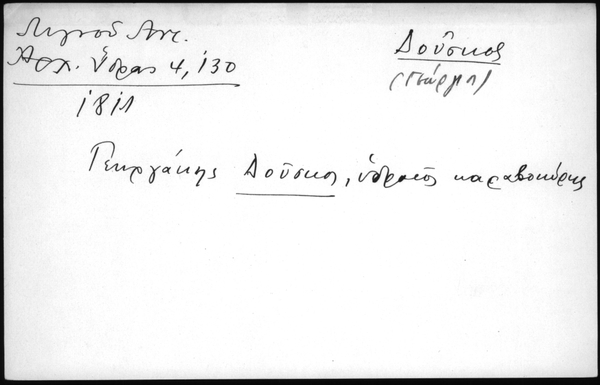 Λιγνοῦ Ἀντ.
Ἀρχ. Ὕδρας 4, 130
1811
Δοῦσκος
(Γιώργης)
Γεωργάκης Δοῦσκος, ὑδραῖος καραβοκύρης